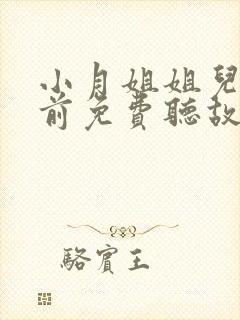 小月姐姐兒
前免費聽故
駱賓王